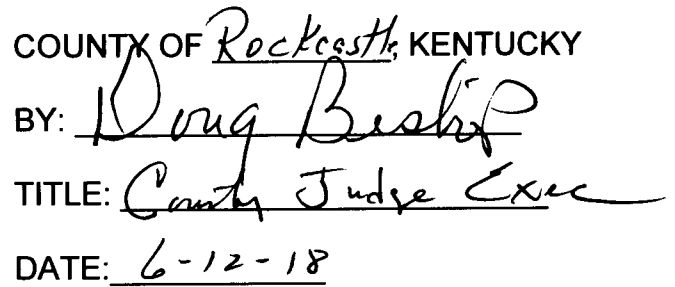 COUNTY OF Rockcastle, KENTUCKY
BY: Doug Bishop
TITLE: County Judge Exec
DATE: 6-12-18